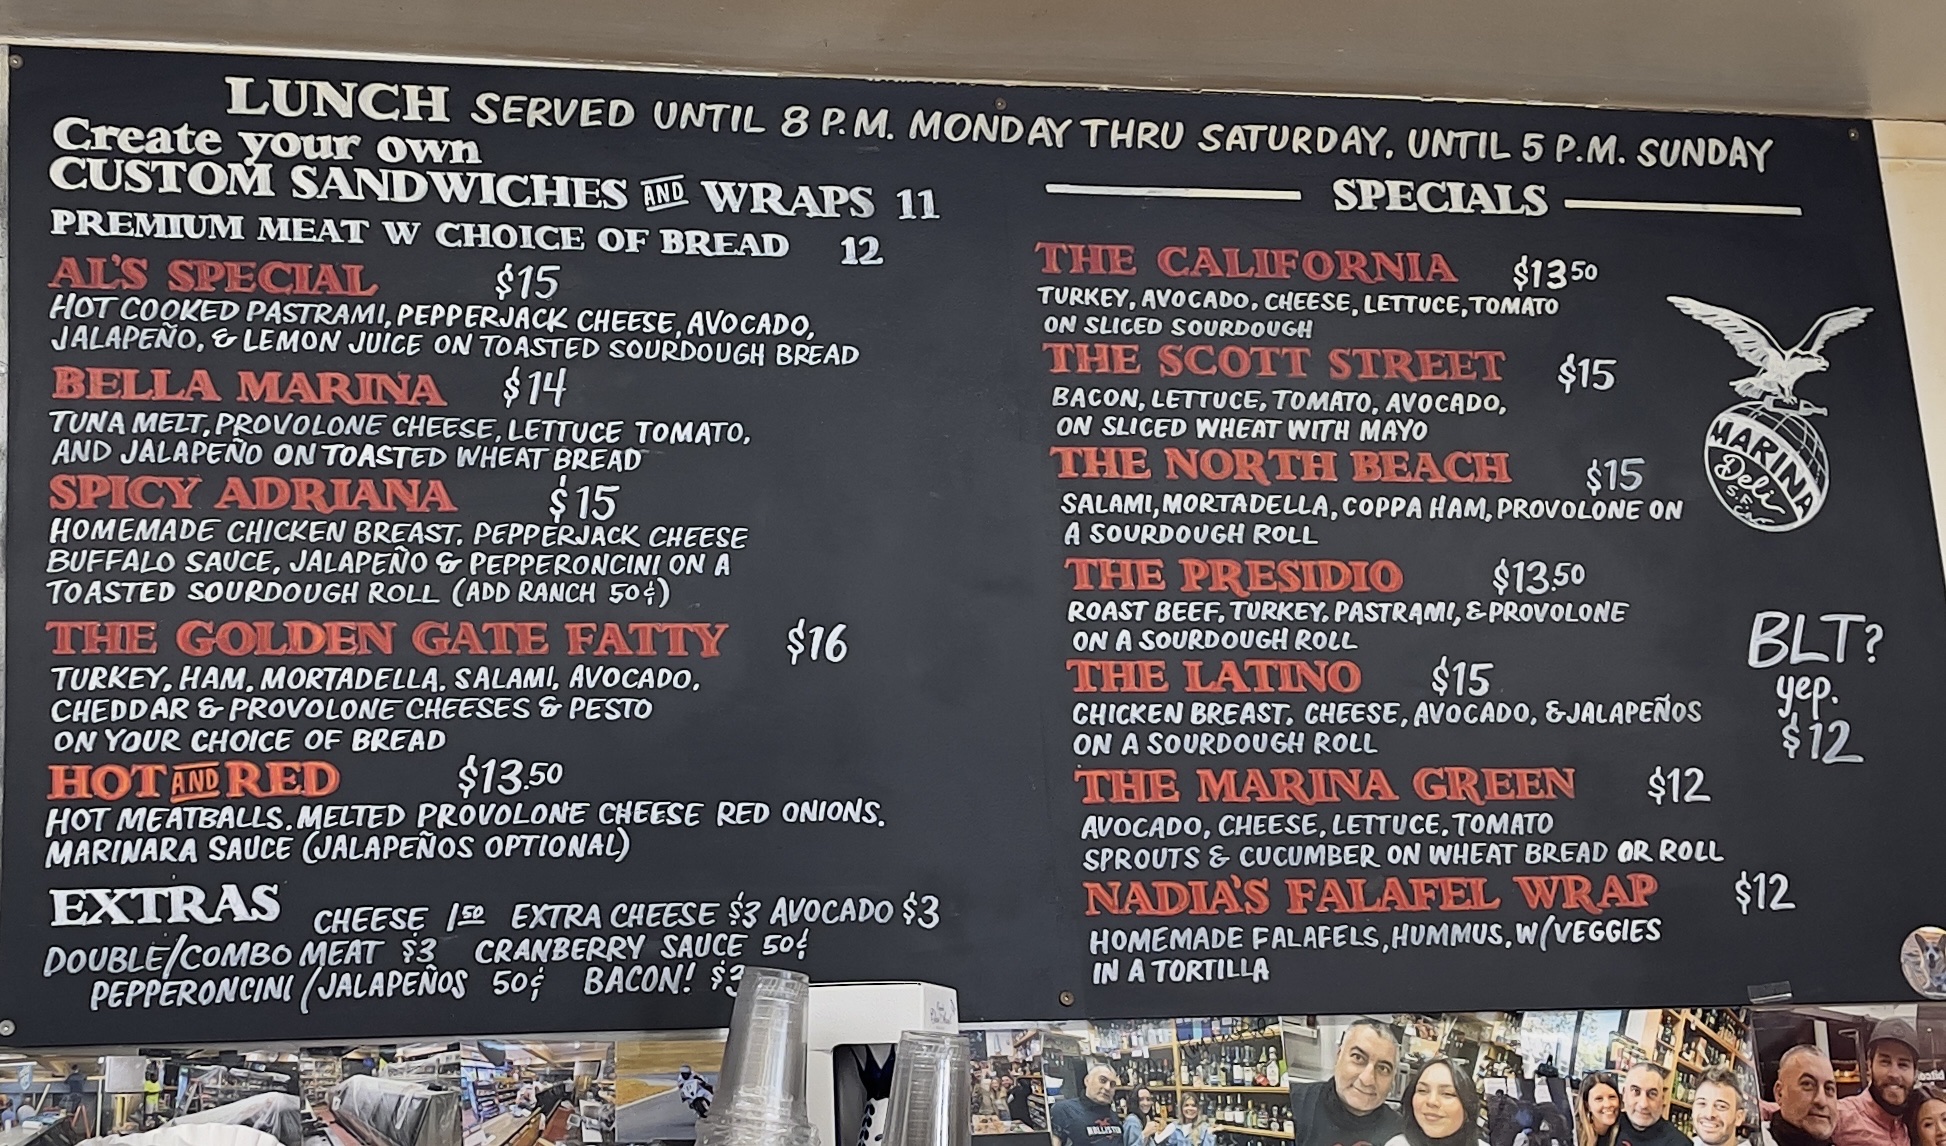 LUNCH SERVED UNTIL 8 P.M. MONDAY THRU SATURDAY, UNTIL 5 P.M. SUNDAY
Create your own
CUSTOM SANDWICHES AND WRAPS 11
PREMIUM MEAT W CHOICE OF BREAD 12
AL'S SPECIAL $15
HOT COOKED PASTRAMI, PEPPERJACK CHEESE, AVOCADO,
JALAPEÑO, & LEMON JUICE ON TOASTED SOURDOUGH BREAD
BELLA MARINA $14
TUNA MELT, PROVOLONE CHEESE, LETTUCE TOMATO,
AND JALAPEÑO ON TOASTED WHEAT BREAD
SPICY ADRIANA $15
HOMEMADE CHICKEN BREAST, PEPPERJACK CHEESE
BUFFALO SAUCE, JALAPEÑO & PEPPERONCINI ON A
TOASTED SOURDOUGH ROLL (ADD RANCH 50¢)
THE GOLDEN GATE FATTY $16
TURKEY, HAM, MORTADELLA, SALAMI, AVOCADO,
CHEDDAR & PROVOLONE CHEESES & PESTO
ON YOUR CHOICE OF BREAD
HOT AND RED $13.50
HOT MEATBALLS, MELTED PROVOLONE CHEESE RED ONIONS,
MARINARA SAUCE (JALAPEÑOS OPTIONAL)
EXTRAS CHEESE 1 50 EXTRA CHEESE $3 AVOCADO $3
DOUBLE/COMBO MEAT $3 CRANBERRY SAUCE 50¢
PEPPERONCINI/JALAPEÑOS 50¢ BACON! $3
SPECIALS
THE CALIFORNIA $13 50
TURKEY, AVOCADO, CHEESE, LETTUCE, TOMATO
ON SLICED SOURDOUGH
THE SCOTT STREET $15
BACON, LETTUCE, TOMATO, AVOCADO,
ON SLICED WHEAT WITH MAYO
THE NORTH BEACH $15
SALAMI, MORTADELLA, COPPA HAM, PROVOLONE ON
A SOURDOUGH ROLL
THE PRESIDIO $13.50
ROAST BEEF, TURKEY, PASTRAMI, & PROVOLONE
ON A SOURDOUGH ROLL
THE LATINO $15
CHICKEN BREAST, CHEESE, AVOCADO, & JALAPEÑOS
ON A SOURDOUGH ROLL
THE MARINA GREEN $12
AVOCADO, CHEESE, LETTUCE, TOMATO
SPROUTS & CUCUMBER ON WHEAT BREAD OR ROLL
NADIA'S FALAFEL WRAP $12
HOMEMADE FALAFELS, HUMMUS, W/VEGGIES
IN A TORTILLA
MARINA
Deli
S.F.
BLT?
yep.
$12
HOLLISTER